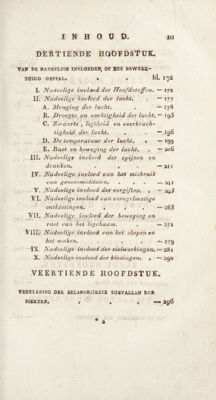 INHOUD. III
DERTIENDE HOOFDSTUK.
VAN DE NADEELIGE INVLOEDEN, OP HET BEWERK-
TUIGD GESTEL. bl. 172
I. Nadeelige invloed der Hoofdstoffen. — 172
II. Nadeelige invloed der lucht. — 177
A. Menging der lucht. — 178
B. Droogte en vochtigheid der lucht. — 193
C. Zwaarte, ligtheid en veerkrach-
tigheid der lucht. — 196
D. De temperatuur der lucht. — 199
E. Rust en beweging der lucht. — 206
III. Nadeelige invloed der spijsen en
dranken. — 211
IV. Nadeelige invloed van het misbruik
van geneesmiddelen. — 241
V. Nadeelige invloed der vergiften. — 245
VI. Nadeelige invloed van onregelmatige
ontlastingen. — 263
VII. Nadeelige invloed der beweging en
rust van het ligchaam. — 271
VIII. Nadeelige invloed van het slapen en
het waken. — 279
IX. Nadeelige invloed der zielwerkingen. — 281
X. Nadeelige invloed der kleeding. — 290
VEERTIENDE HOOFDSTUK.
VERKLARING DER BELANGRIJKSTE TOEVALLEN DER
ZIEKTEN. — 296